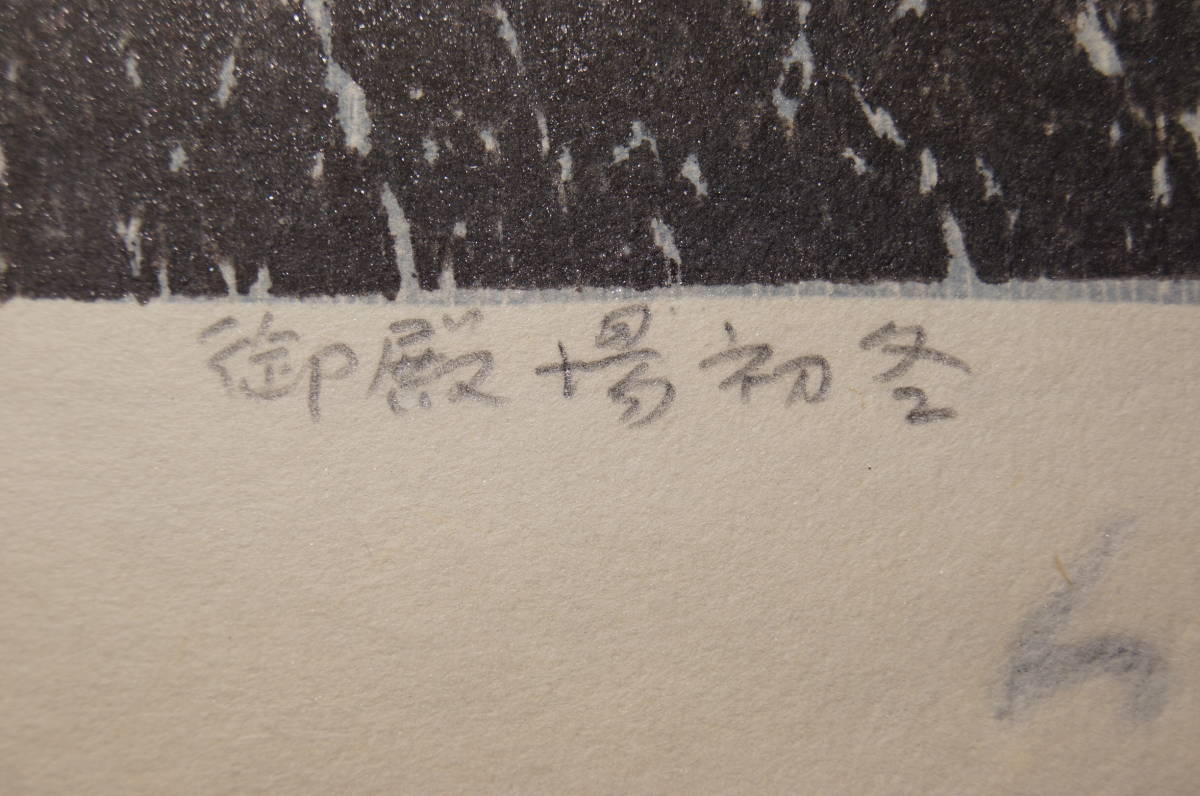 御殿場初冬